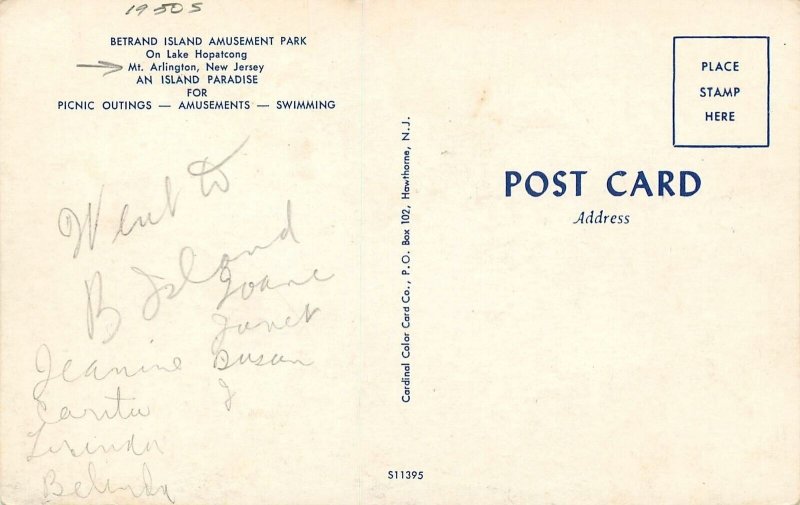 1950s
BETRAND ISLAND AMUSEMENT PARK
On Lake Hopatcong
Mt. Arlington, New Jersey
AN ISLAND PARADISE
FOR
PICNIC OUTINGS — AMUSEMENTS — SWIMMING
Went to
B Island
Joane
Janet
Susan
J
Jeanine
Lorinda
Belinda
Cardinal Color Card Co., P.O. Box 102, Hawthorne, N.J.
S11395
PLACE
STAMP
HERE
POST CARD
Address